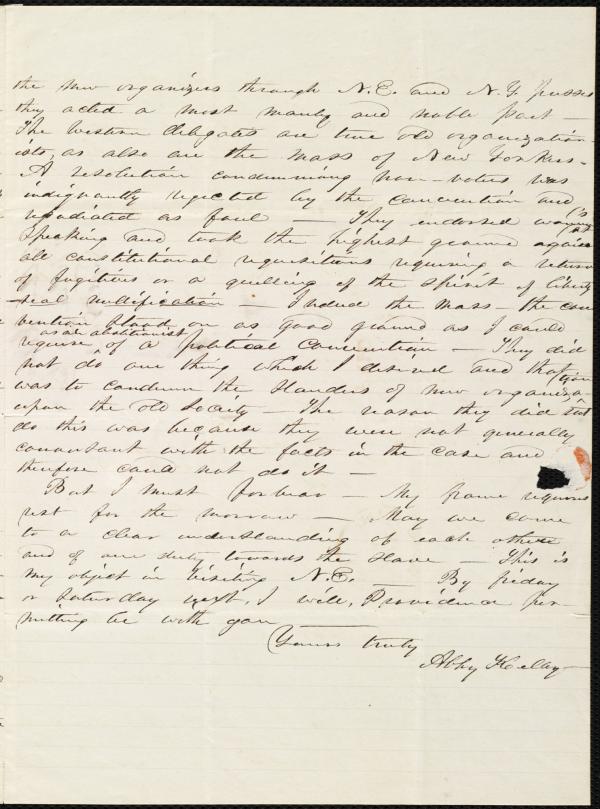 the new organizers through N.E. and N.Y. passes
they acted a most manly and noble part —
The Western delegates are true old organization-
ists, as also are the mass of New Yorkers —
A resolution condemning non-voters was
indignantly rejected by the convention and
repudiated as foul — They endorsed woman's
speaking and took the highest ground against
all constitutional requisitions requiring a return
of fugitives or a quelling of the spirit of liberty
— real nullification — Indeed the mass — the con
vention stood on as good ground as I could
as an abolitionist
require of a political convention — They did
not do one thing which I desired and that
was to condemn the slanders of new organization
upon the old Society — The reason they did not
do this was because they were not generally
conversant with the facts in the case and
therefore could not do it —
But I must forbear — My frame requires
rest for the morrow — May we come
to a clear understanding of each other
and of our duty towards the slave — This is
my object in visiting N.E. — By friday
or Saturday next, I will, Providence per-
mitting be with you
Yours truly
Abby Kelley